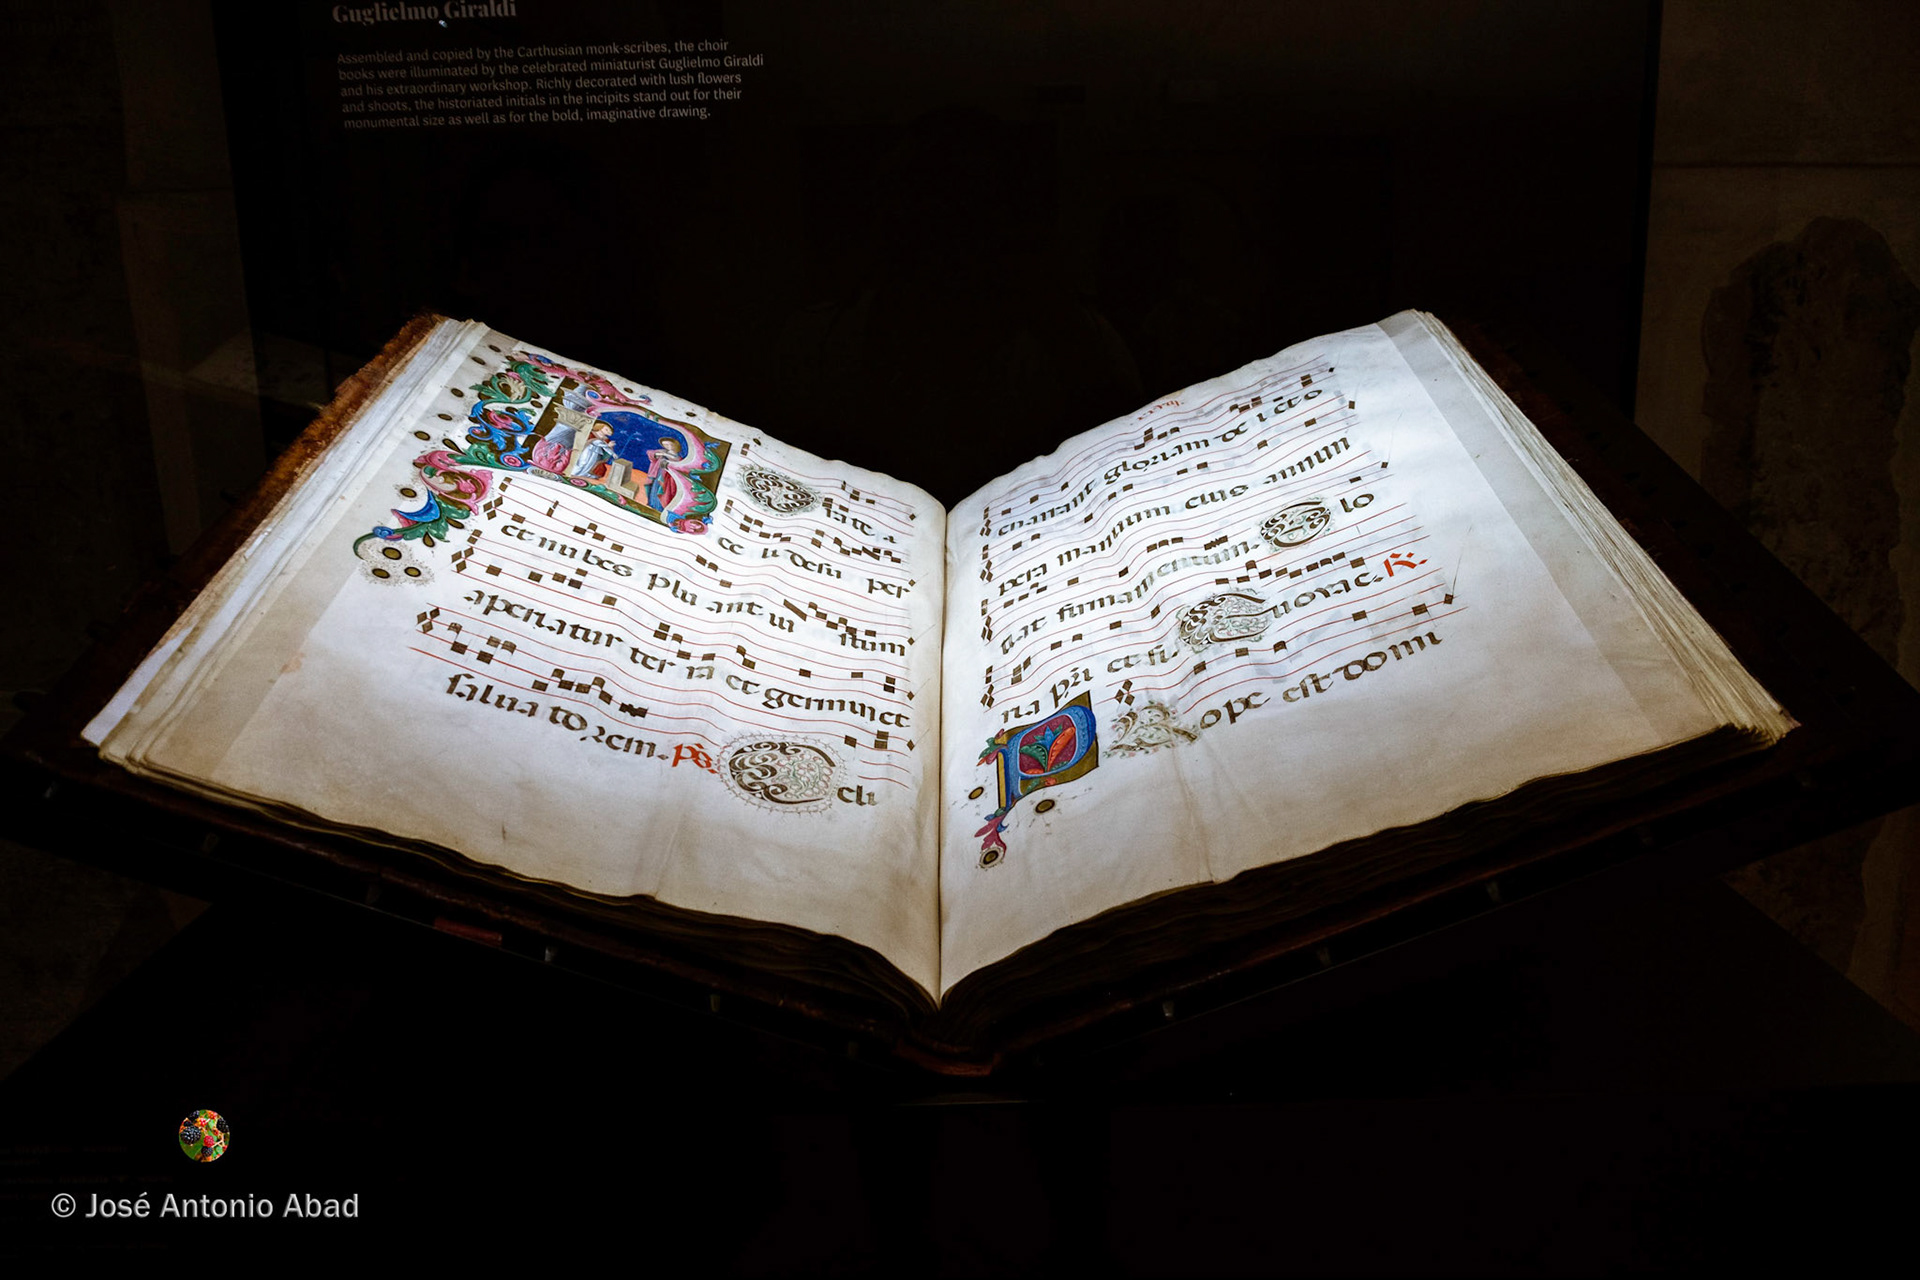 Guglielmo Giraldi
Assembled and copied by the Carthusian monk-scribes, the choir
books were illuminated by the celebrated miniaturist Guglielmo Giraldi
and his extraordinary workshop. Richly decorated with lush flowers
and shoots, the historiated initials in the incipits stand out for their
monumental size as well as for the bold, imaginative drawing.
R orate c
celi desu per
et nubes plu ant iu stum
aperiatur ter ra et germinet
salua torem. ps. Celi
enarrant gloriam de i et o
pera manuum eius annun
tiat firmamentum. Glo
ria pri et fi. Euouae. R.
Prope est domi
© José Antonio Abad